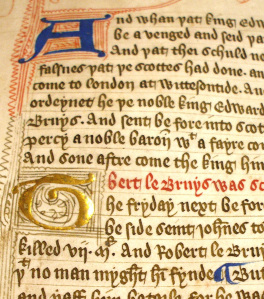 And whan þat king Edw
be a venged and seid þa
And þat thei schuld ne
falsnes þat þe scottes had done. an
come to london at wittesontide. An
ordeynet he þe noble king Edward
Bruys. And sent be fore into scot
percy a noble baron wt a fayre co
And sone aftre come the king him
Gbert le Bruys was sc
he fryday next be for
be side seint johnes to
killed vij. Ml. And Robert le Bruy
þt no man myght hī fynde But